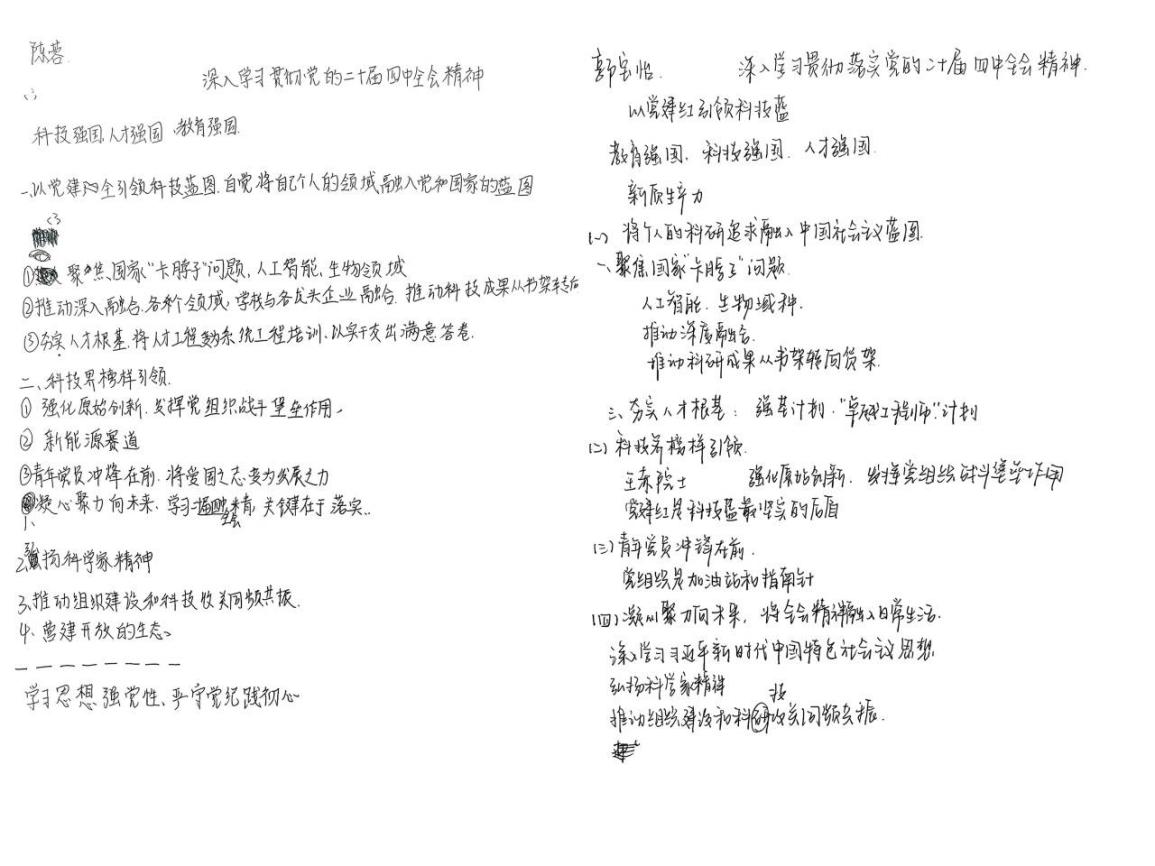 陈蓉
深入学习贯彻党的二十届四中全会精神
科技强国,人才强国,教育强国.
一.以党建 全引领科技蓝图.自觉将自己个人的领域融入党和国家的蓝图
① 聚焦国家"卡脖子"问题,人工智能,生物领域
②推动深入融合.各个领域,学校与各龙头企业融合.推动科技成果从书架转
③夯实人才根基.将人才工程 系统工程培训.以实干交出满意答卷.
二、科技界榜样引领.
① 强化原始创新.发挥党组织战斗堡垒作用.
② 新能源赛道
③青年党员冲锋在前.将爱国之志变为发展之力
④凝心聚力向未来.学习 全会精 关键在于落实..
1、
2.弘扬科学家精神
3.推动组织建设和科技攻关同频共振.
4、营建开放的生态。
学习思想 强党性、严守党纪践初心
郭宝怡. 深入学习贯彻落实党的二十届四中全会精神.
以党建红引领科技蓝
教育强国. 科技强国. 人才强国.
新质生产力
(一) 将个人的科研追求融入中国社会主义蓝图.
一、聚焦国家"卡脖子"问题.
人工智能.生物域种.
推动深度融合.
推动科研成果从书架转向货架.
三、夯实人才根基: 强基计划."卓越工程师"计划
(二) 科技界榜样引领.
院士 强化原始创新. 发挥党组织战斗堡垒作用
党建红是科技蓝最坚实的后盾
(三) 青年党员冲锋在前.
党组织是加油站和指南针
(四) 凝心聚力向未来, 将全会精神融入日常生活.
深入学习习近平新时代中国特色社会主义思想.
弘扬科学家精神
推动组织建设和科技攻关同频共振.